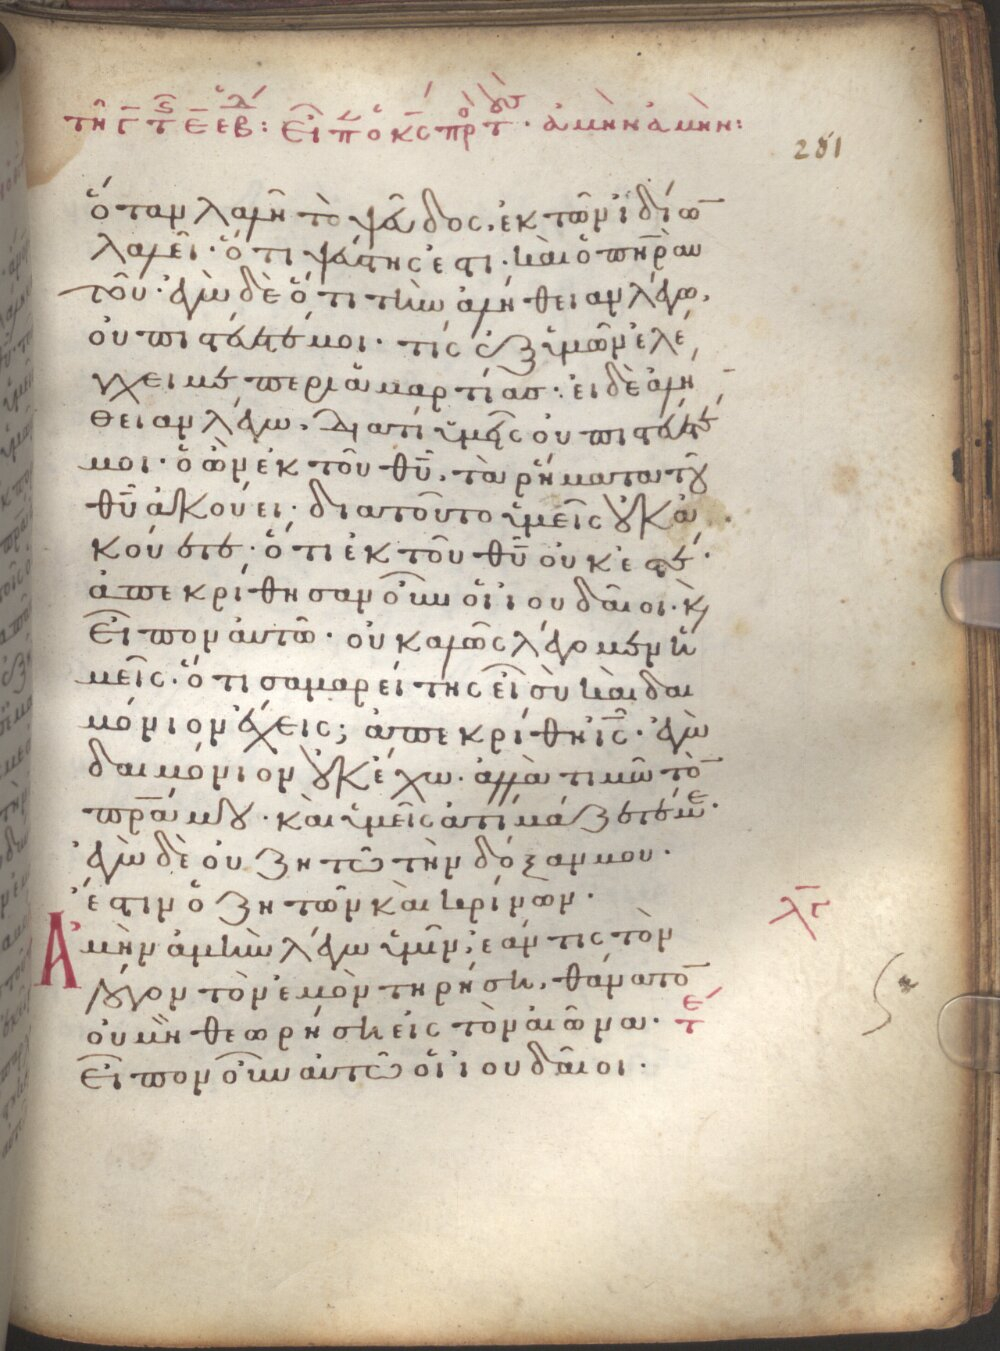 τῆ ϛ τ ε εβ: εἶπ ὁ κς πρ τ · ἀμὴν ἀμὴν:
281
ὅταν λαλῆ τὸ ψεῦδος, ἐκ τῶν ἰδίω
λαλεῖ · ὅτι ψεύστης ἐστι · καὶ ὁ πηρ αυ
τοῦ · ἐγὼ δὲ ὅτι τὴν ἀλήθειαν λέγω,
οὐ πιστεύετέ μοι · τίς ἐξ ὑμῶν ἐλέ
γχει με περι ἁμαρτίασ · εἰ δὲ ἀλή
θειαν λέγω, διατί ὑμεῖς οὐ πιστεύετέ
μοι · ὁ ὢν ἐκ τοῦ θῦ, τὰ ρήματα τοῦ
θῦ ἀκούει · διατοῦτο ὑμεῖς οὐκ ἀ
κούετε · ὅτι ἐκ τοῦ θῦ οὐκ ἐστέ ·
ἀπεκρίθησαν οὖν οἱ ἰουδαῖοι · κ
εἶπον αὐτῶ · οὐ καλῶς λέγομεν ἡ
μεῖς · ὅτι σαμαρείτης εἶ σὺ καὶ δαι
μόνιον ἔχεις; ἀπεκρίθη ἰς · ἐγὼ
δαιμόνιον οὐκ ἔχω · ἀλλὰ τιμῶ τὸ
πρα μου · καὶ ὑμεῖς ἀτιμάζετέ με ·
ἐγὼ δὲ οὐ ζητῶ τὴν δόξαν μου ·
ἔστιν ὁ ζητῶν καὶ κρίνων ·
Ἀμὴν ἀμὴν λέγω ὑμῖν, ἐάν τις τὸν
λόγον τὸν ἐμὸν τηρήση, θάνατο
οὐ μὴ θεωρήση εἰς τὸν αἰῶνα · τε
εἶπον οὖν αὐτῶ οἱ ἰουδαῖοι ·